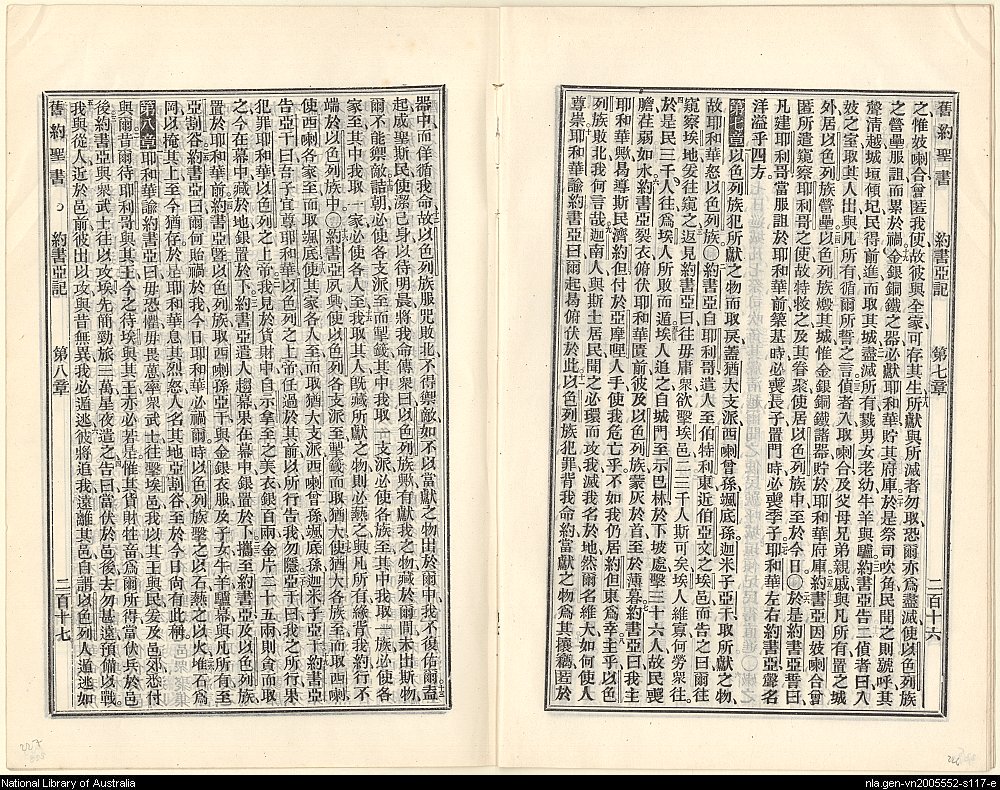 舊約聖書 約書亞記 第七章 二百十六
之惟妓喇合曾匿我使故彼與全家可存其生所獻與所滅者勿取恐爾亦爲盡滅使以色列族
之營壘服詛而累於禍金銀銅鐵之器必獻耶和華貯其府庫於是祭司吹角民聞之則號呼其
聲淸越城垣傾圮民得前進而取其城盡滅所有戮男女老幼牛羊與驢約書亞告二偵者曰入
妓之室取其人出與凡所有循爾所誓之言偵者入取喇合及父母兄弟親戚與凡所有置之城
外居以色列族營壘以色列族燬其城惟金銀銅鐵諸器貯於耶和華府庫約書亞因妓喇合曾
匿所遣窺察耶利哥之使故特救之及其眷聚使居以色列族中至於今日〇於是約書亞誓曰
凡建耶利哥當服詛於耶和華前築基時必喪長子置門時必喪季子耶和華左右約書亞聲名
洋溢乎四方
第七章以色列族犯所獻之物而取戾蓋猶大支派西喇曾孫颯底孫迦米子亞干取所獻之物
故耶和華怒以色列族〇約書亞自耶利哥遣人至伯特利東近伯亞文之埃邑而告之曰爾往
窺察埃地爰往窺之返見約書亞曰往毋庸衆欲擊埃邑二三千人斯可矣埃人維寡何勞衆往
於是民三千人往爲埃人所敗而遁埃人追之自城門至示巴林於下坡處擊三十六人故民喪
膽荏弱如水約書亞裂衣俯伏耶和華匱前彼及以色列族蒙灰於首至於薄暮約書亞曰我主
耶和華歟曷導斯民濟約但付於亞摩哩人手使我危亡乎不如我仍居約但東爲幸主乎以色
列族敗北我何言哉迦南人與斯土居民聞之必環而攻我滅我名於地然爾名維大如何使人
尊崇耶和華諭約書亞曰爾起曷俯伏於此以色列族犯罪背我命約當獻之物爲其攘竊匿於
器中而佯循我命故以色列族服咒敗北不得禦敵如不以當獻之物出於爾中我不復佑爾盍
起成聖斯民使潔己身以待明晨將我命傳衆曰以色列族歟有獻我之物藏於爾間未出斯物
爾不能禦敵詰朝必使各支派至而掣籤其中我取一支派必使各族至其中我取一族必使各
家至其中我取一家必使各人至我取其人既藏所獻之物則必爇之與凡所有緣背我約行不
端於以色列族中〇約書亞夙興使以色列各支派至掣籤而取猶大使猶大各族至而取西喇
使西喇各家至而取颯底使其家各人至而取猶大支派西喇曾孫颯底孫迦米子亞干約書亞
告亞干曰吾子宜尊耶和華以色列之上帝任過於其前以所行告我勿隱亞干曰我之所行果
犯罪耶和華以色列之上帝我見於貨財中自示拿至之美衣銀百兩金片二十五兩則貪而取
之今在幕中藏於地銀置於下約書亞遣人趨幕果在幕中銀置於下攜至約書亞及以色列族
置於耶和華前約書亞曁以色列族取西喇孫亞干與金銀衣服及子女牛羊驢幕與凡所有至
亞割谷約書亞曰爾何貽禍於我今日耶和華必禍爾時以色列族擊之以石爇之以火堆石爲
岡以掩其上至今猶存於是耶和華息其烈怒人名其地亞割谷至於今日尙有此稱
第八章耶和華諭約書亞曰毋恐懼毋畏葸率衆武士往擊埃邑我以其王與民爰及邑郊悉付
與爾昔爾待耶利哥與其王今之待埃與其王亦必若是惟其貨財牲畜爲爾所得當伏兵於邑
後約書亞與衆武士往以攻埃先簡勁旅三萬星夜遣之告曰當伏於邑後去勿甚遠預備以戰
我與從人近於邑前彼出以攻與昔無異我必遁逃彼將追我遠離其邑自謂以色列人遁逃如
舊約聖書 約書亞記 第八章 二百十七
National Library of Australia
nla.gen-vn2005552-s117-e